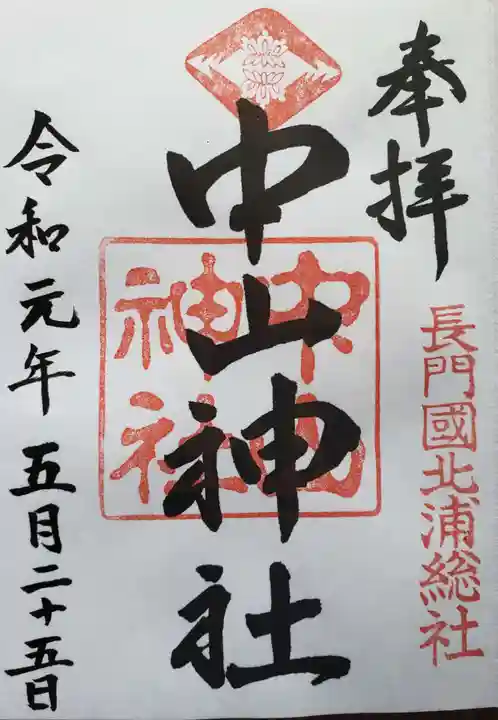 奉拝
長門國北浦総社
中山神社
中山
神社
令和元年五月二十五日